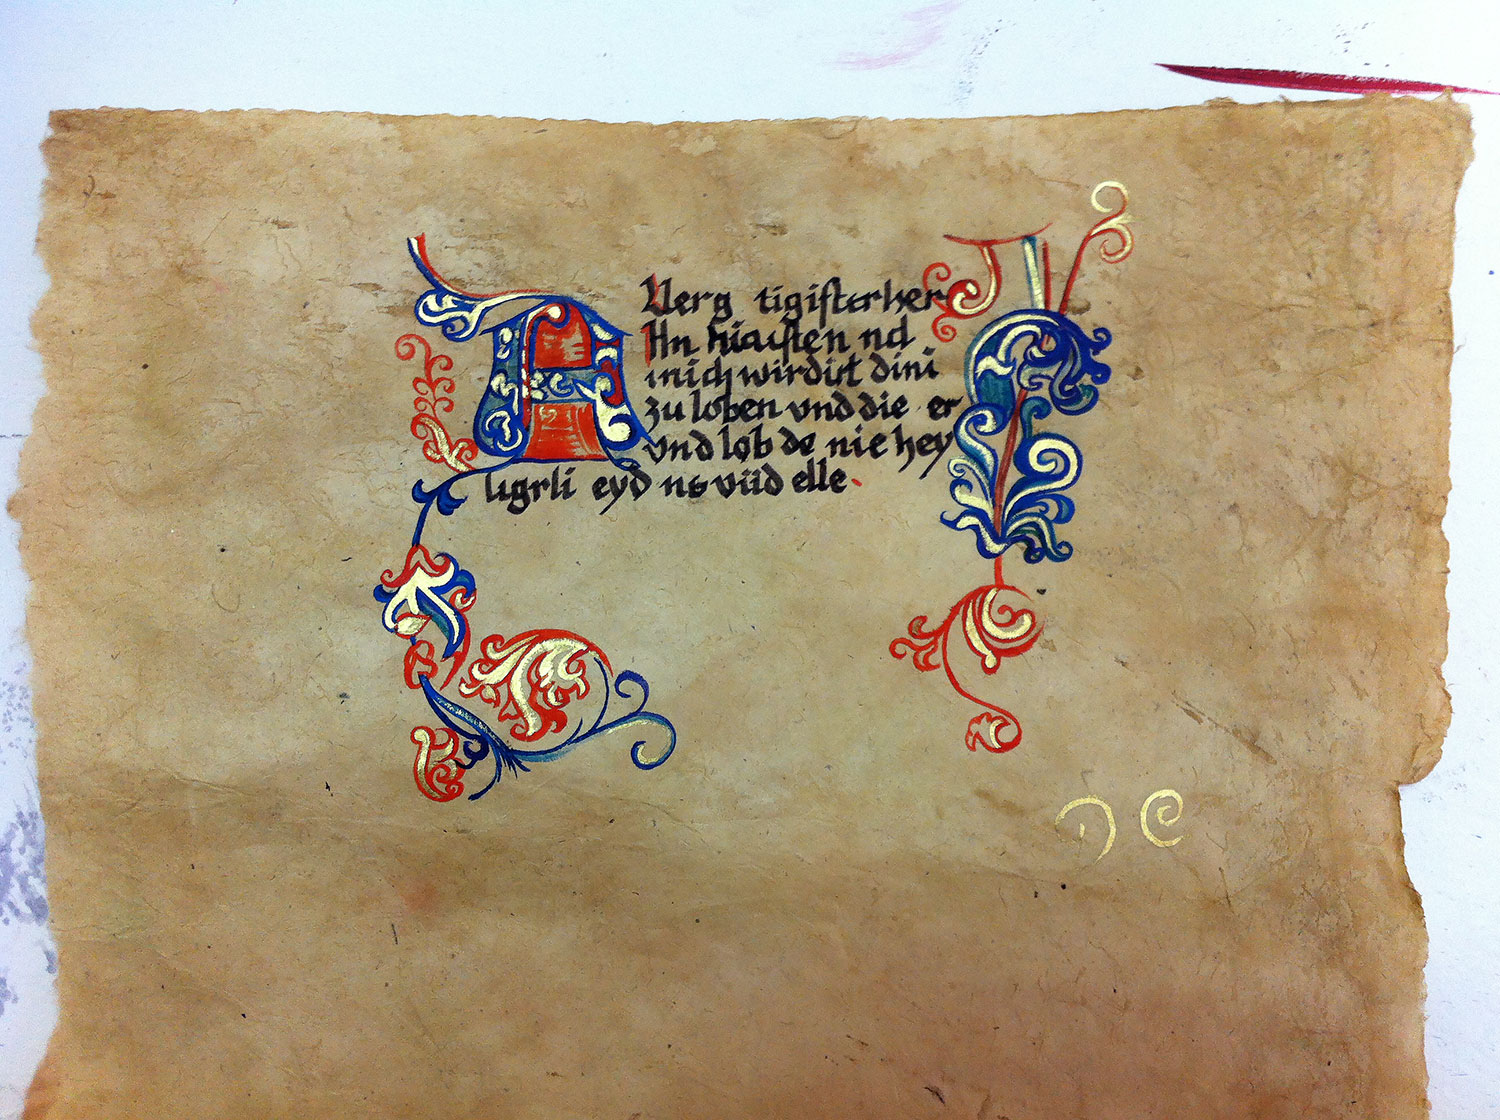 A Verg tigisterher
An hiaisten nd
mich wirdist dini
zu loben vnd die er
vnd lob de nie hey
ligrli eyd ns vüd elle.